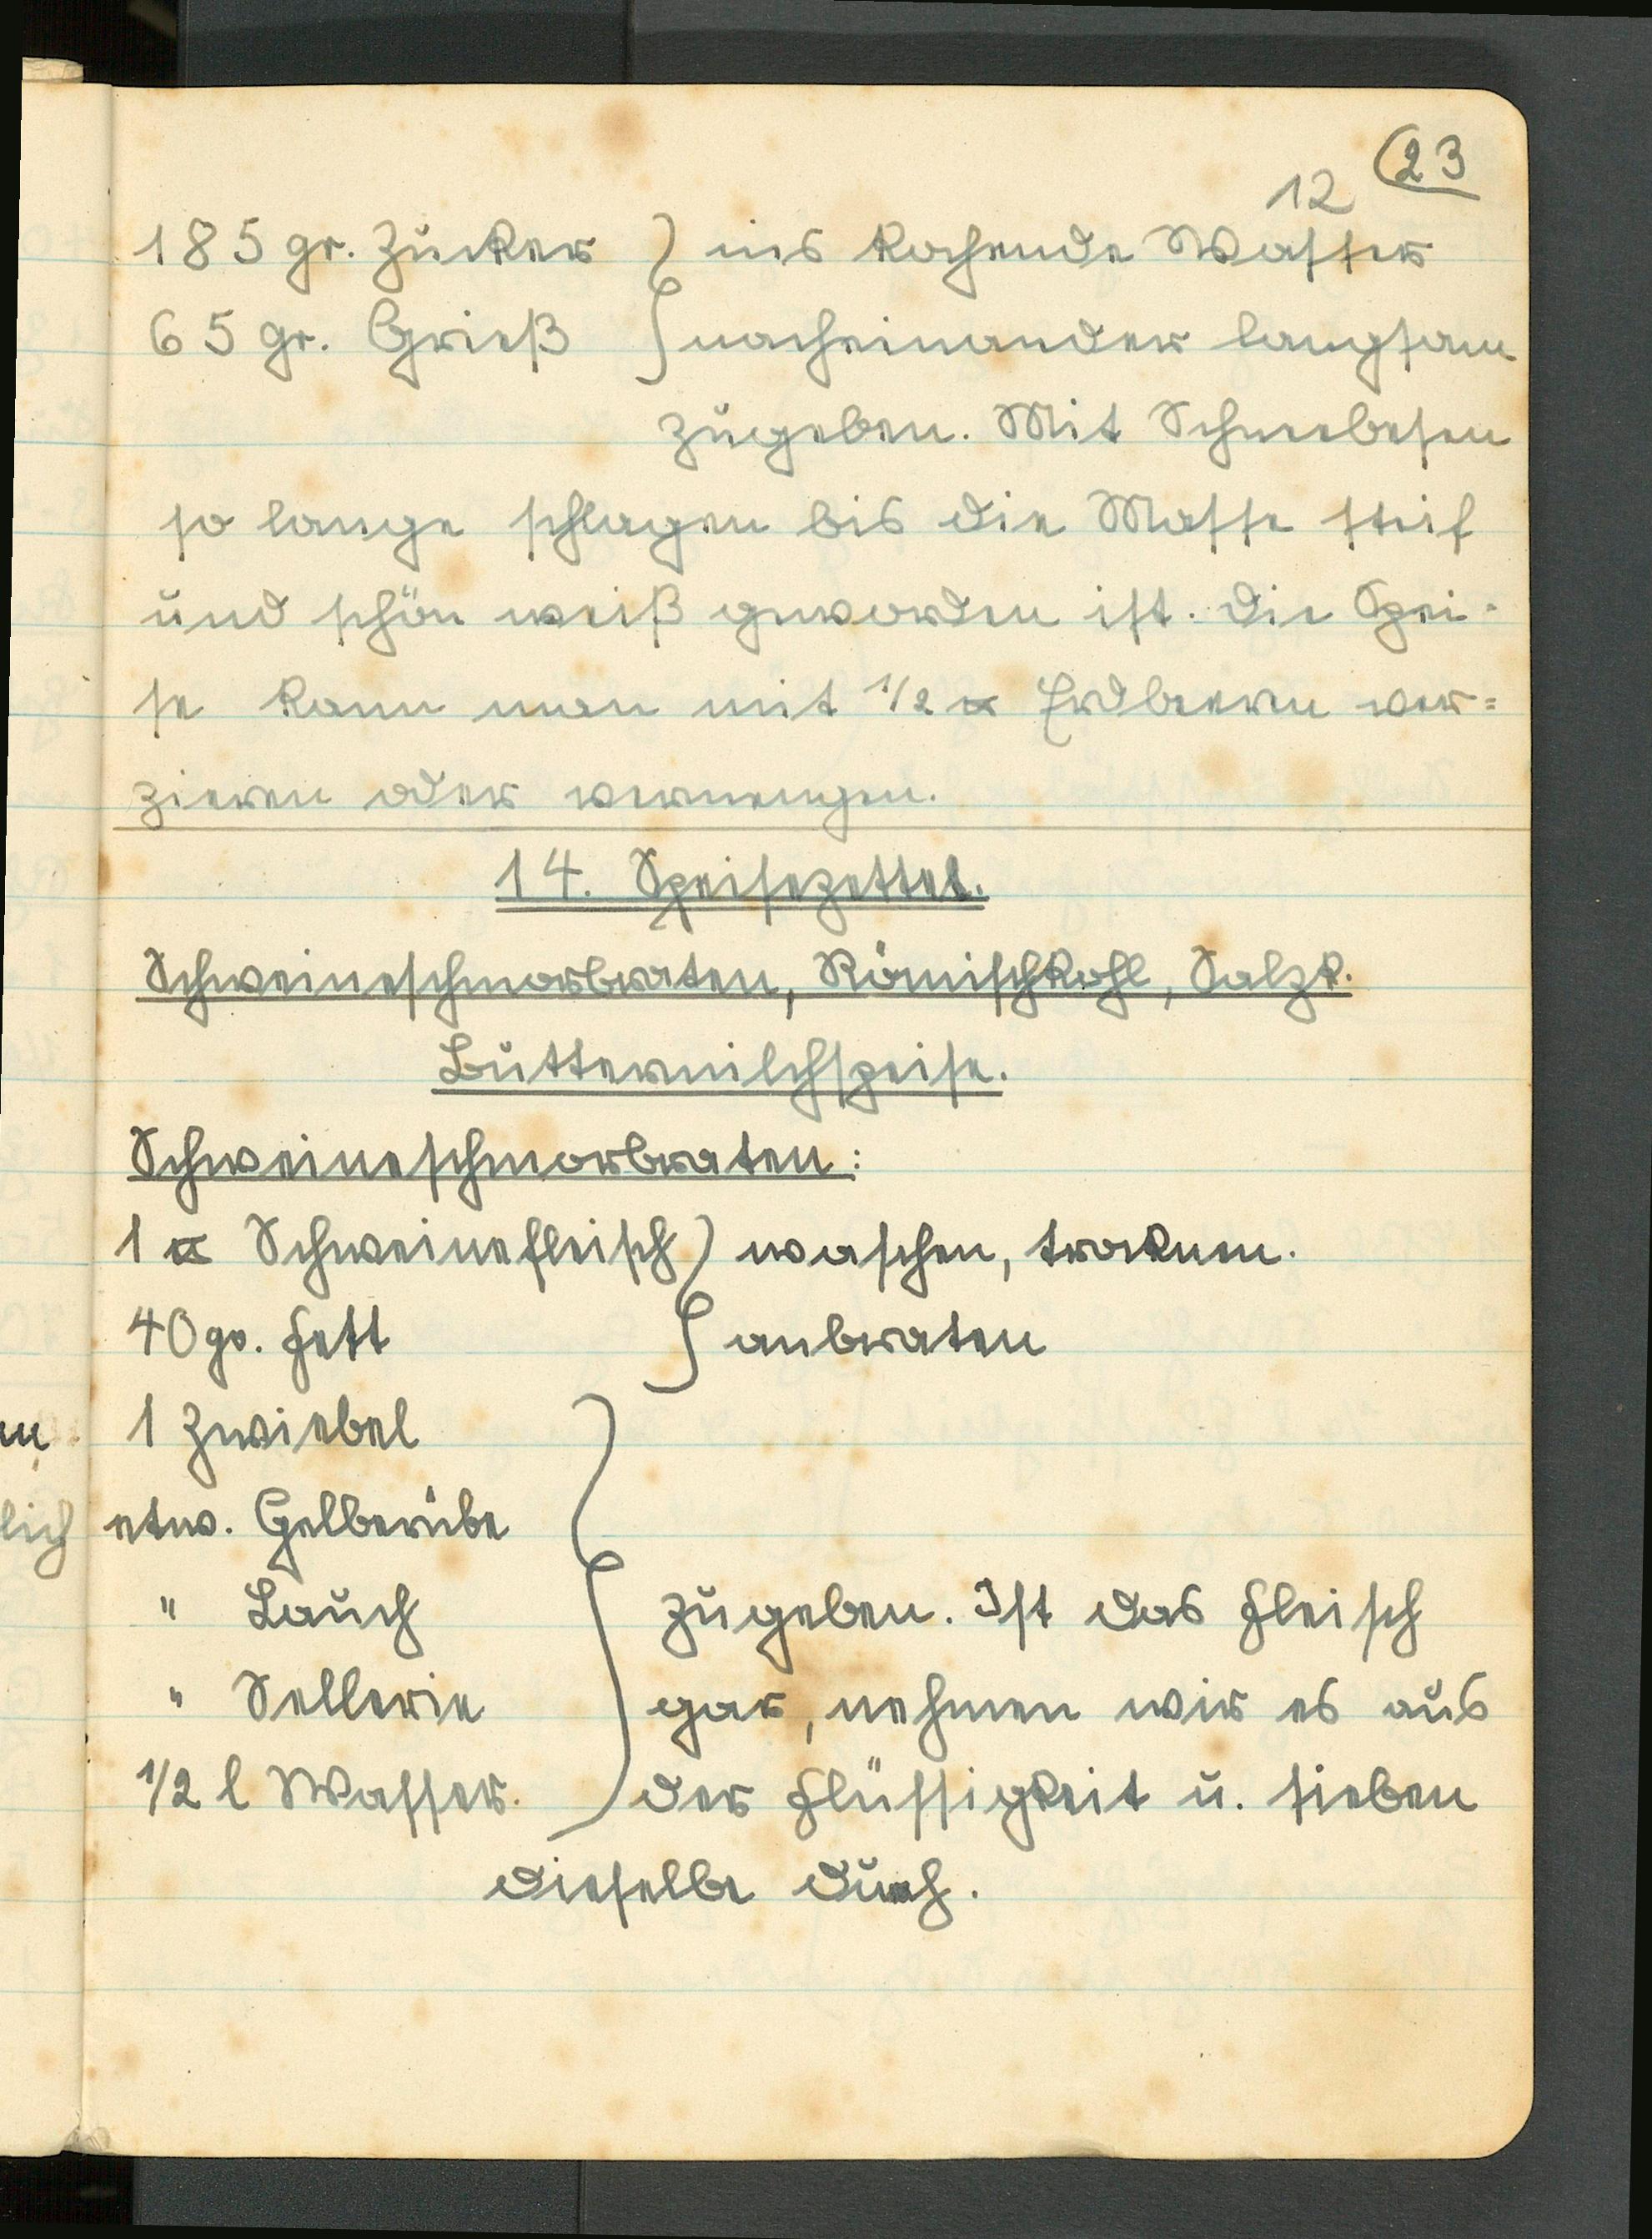 23
12
185 gr. Zucker } ins kochende Wasser
65 gr. Grieß } nacheinander langsam
zugeben. Mit Schneebesen
so lange schlagen bis die Masse steif
und schön weiß geworden ist. Die Spei-
se kann man mit 1/2 ℔ Erdbeeren ver=
zieren oder vermengen.
14. Speisezettel.
Schweineschmorbraten, Römischkohl, Salzk.
Buttermilchspeise.
Schweineschmorbraten:
1 ℔ Schweinefleisch } waschen, trocknen.
40 gr. Fett } anbraten
1 Zwiebel
etw. Gelberübe
" Lauch } zugeben. Ist das Fleisch
" Sellerie } gar, nehmen wir es aus
1/2 l Wasser. } der Flüssigkeit u. sieben
dieselbe durch.